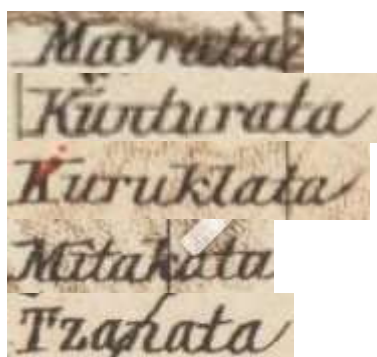 Mavrata
Kunturata
Kuruklata
Mitakata
Tzanata